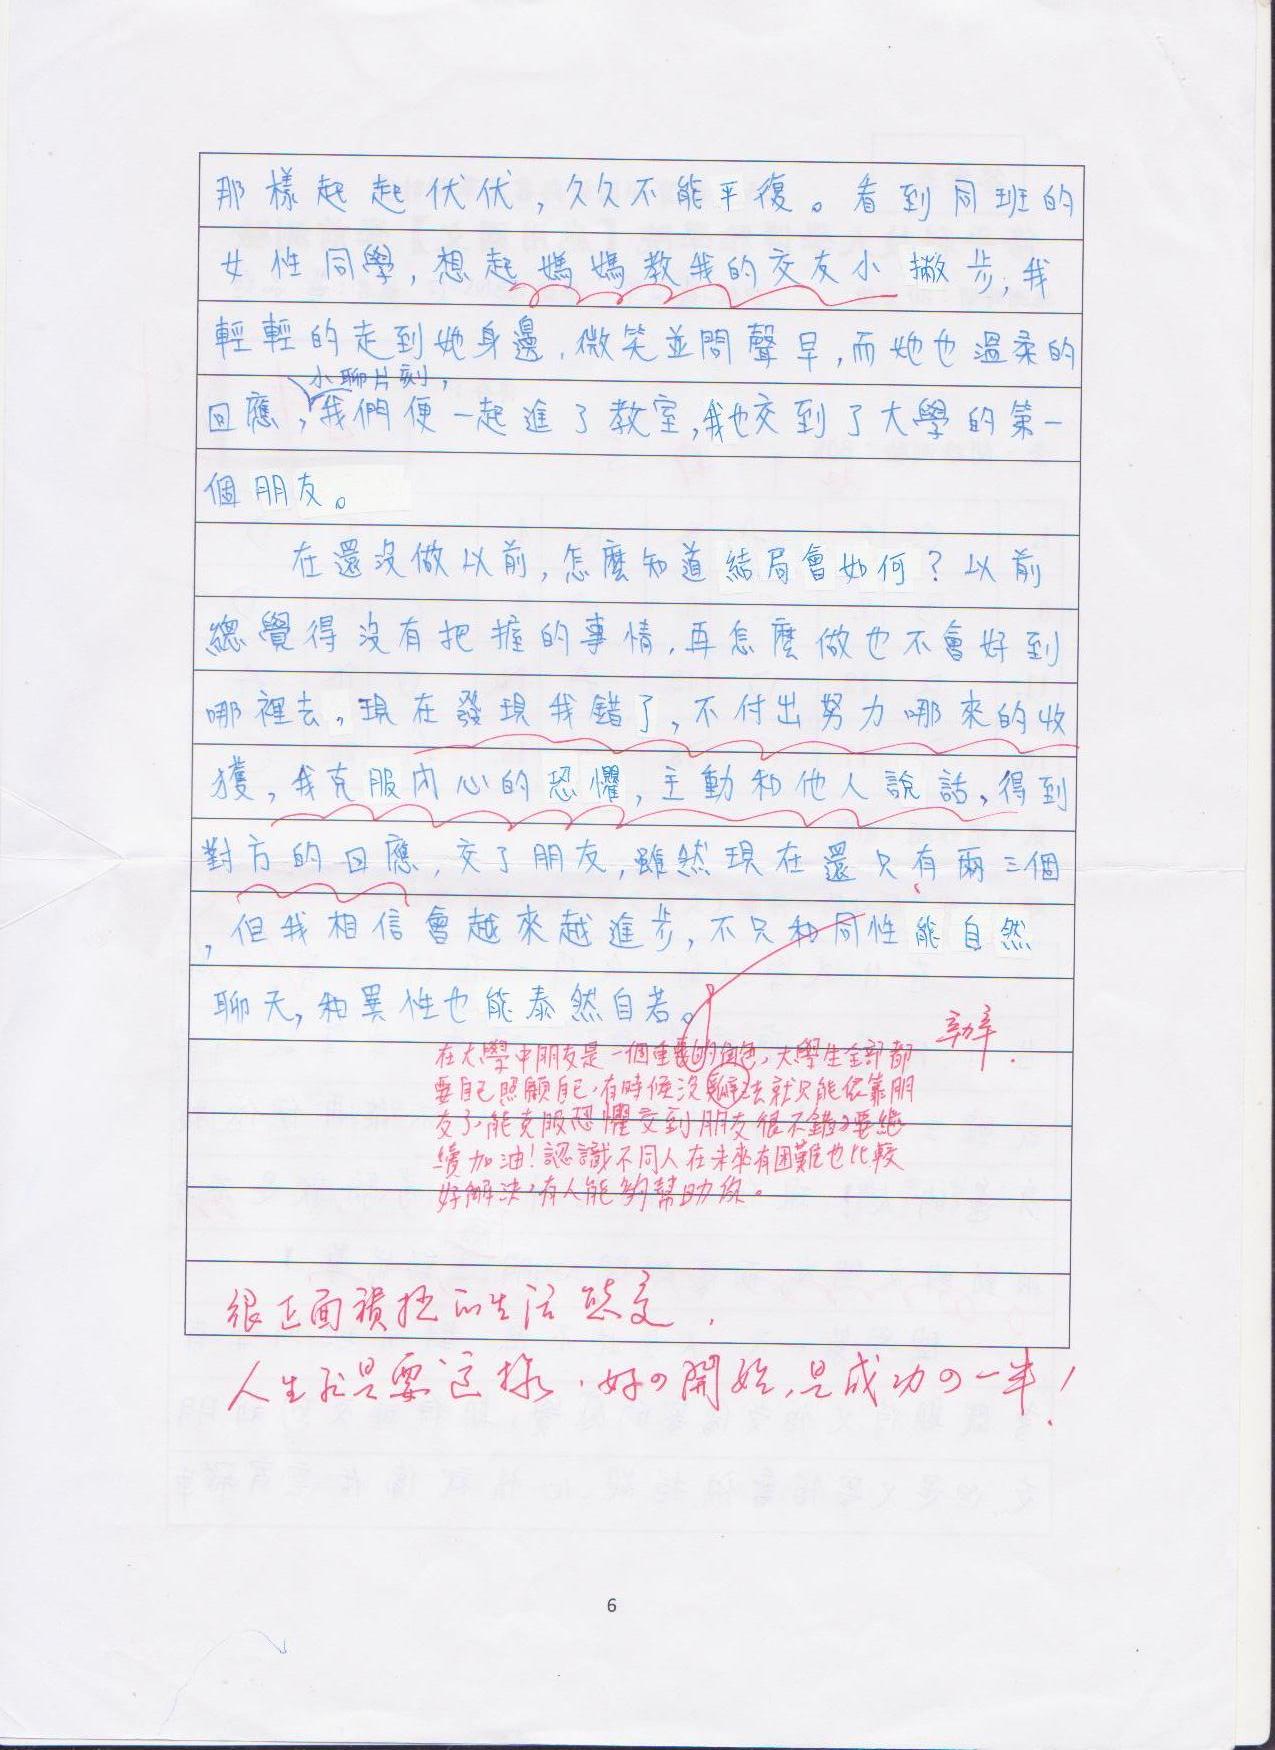 那樣起起伏伏，久久不能平復。看到同班的
女性同學，想起媽媽教我的交友小撇步，我
輕輕的走到她身邊，微笑並問聲早，而她也溫柔的
小聊片刻，
回應，我們便一起進了教室，我也交到了大學的第一
個朋友。
在還沒做以前，怎麼知道結局會如何？以前
總覺得沒有把握的事情，再怎麼做也不會好到
哪裡去，現在發現我錯了，不付出努力哪來的收
獲，我克服內心的恐懼，主動和他人說話，得到
對方的回應，交了朋友，雖然現在還只有兩三個
，但我相信會越來越進步，不只和同性能自然
聊天，和異性也能泰然自若。
辦
在大學中朋友是一個重要的角色，大學生全部都
要自己照顧自己，有時候沒辦法就只能依靠朋
友了，能克服恐懼交到朋友很不錯，要繼
續加油！認識不同人在未來有困難也比較
好解決，有人能夠幫助你。
很正面積極的生活態度，
人生就是要這樣，好的開始，是成功的一半！
6